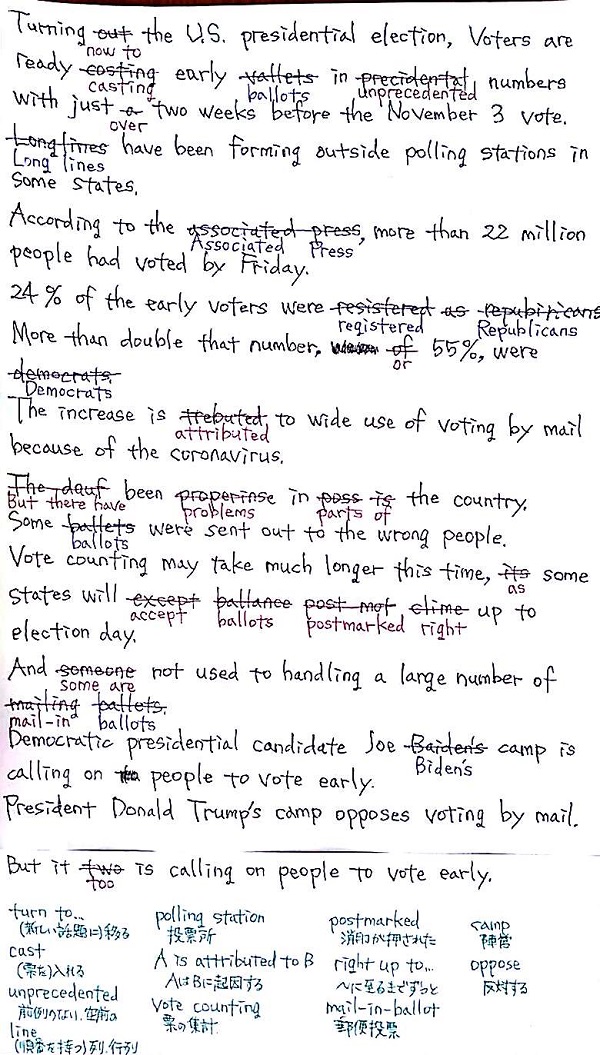 Turning out the U.S. presidential election, Voters are
now to
ready costing early vallets in precidental numbers
casting ballots unprecedented
with just a two weeks before the November 3 vote.
over
Longlines have been forming outside polling stations in
Long lines
Some states.
According to the associated press, more than 22 million
Associated Press
people had voted by Friday.
24% of the early voters were resistered as republicans
registered Republicans
More than double that number, of 55%, were
or
democrats.
Democrats
The increase is trebuted to wide use of voting by mail
attributed
because of the coronavirus.
The dauf been properinse in poss is the country.
But there have problems parts of
Some ballets were sent out to the wrong people.
ballots
Vote counting may take much longer this time, its some
as
states will except ballance post mot clime up to
accept ballots postmarked right
election day.
And someone not used to handling a large number of
some are
mailing ballets.
mail-in ballots
Democratic presidential candidate Joe Baiden's camp is
Biden's
calling on people to vote early.
President Donald Trump's camp opposes voting by mail.
But it two is calling on people to vote early.
too
turn to...
(新しい話題に)移る
cast
(票を)入れる
unprecedented
前例のない、空前の
line
(順番を待つ)列、行列
polling station
投票所
A is attributed to B
AはBに起因する
Vote counting
票の集計
postmarked
消印が押された
right up to...
〜に至るまでずっと
mail-in-ballot
郵便投票
camp
陣営
oppose
反対する